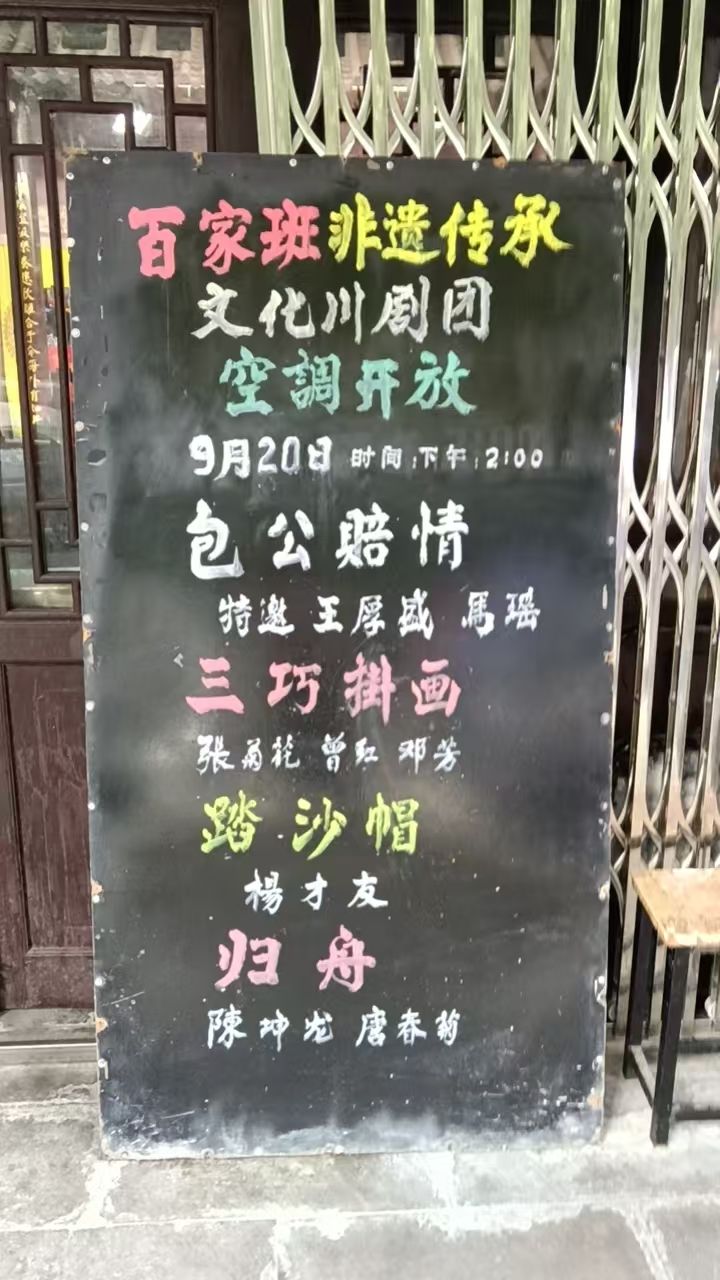 百家班非遗传承
文化川剧团
空調开放
9月20日 时间:下午:2:00
包公赔情
特邀 王厚盛 馬瑶
三巧掛画
張菊花 曾红 邓芳
踏沙帽
楊才友
归舟
陳坤龙 唐春菊